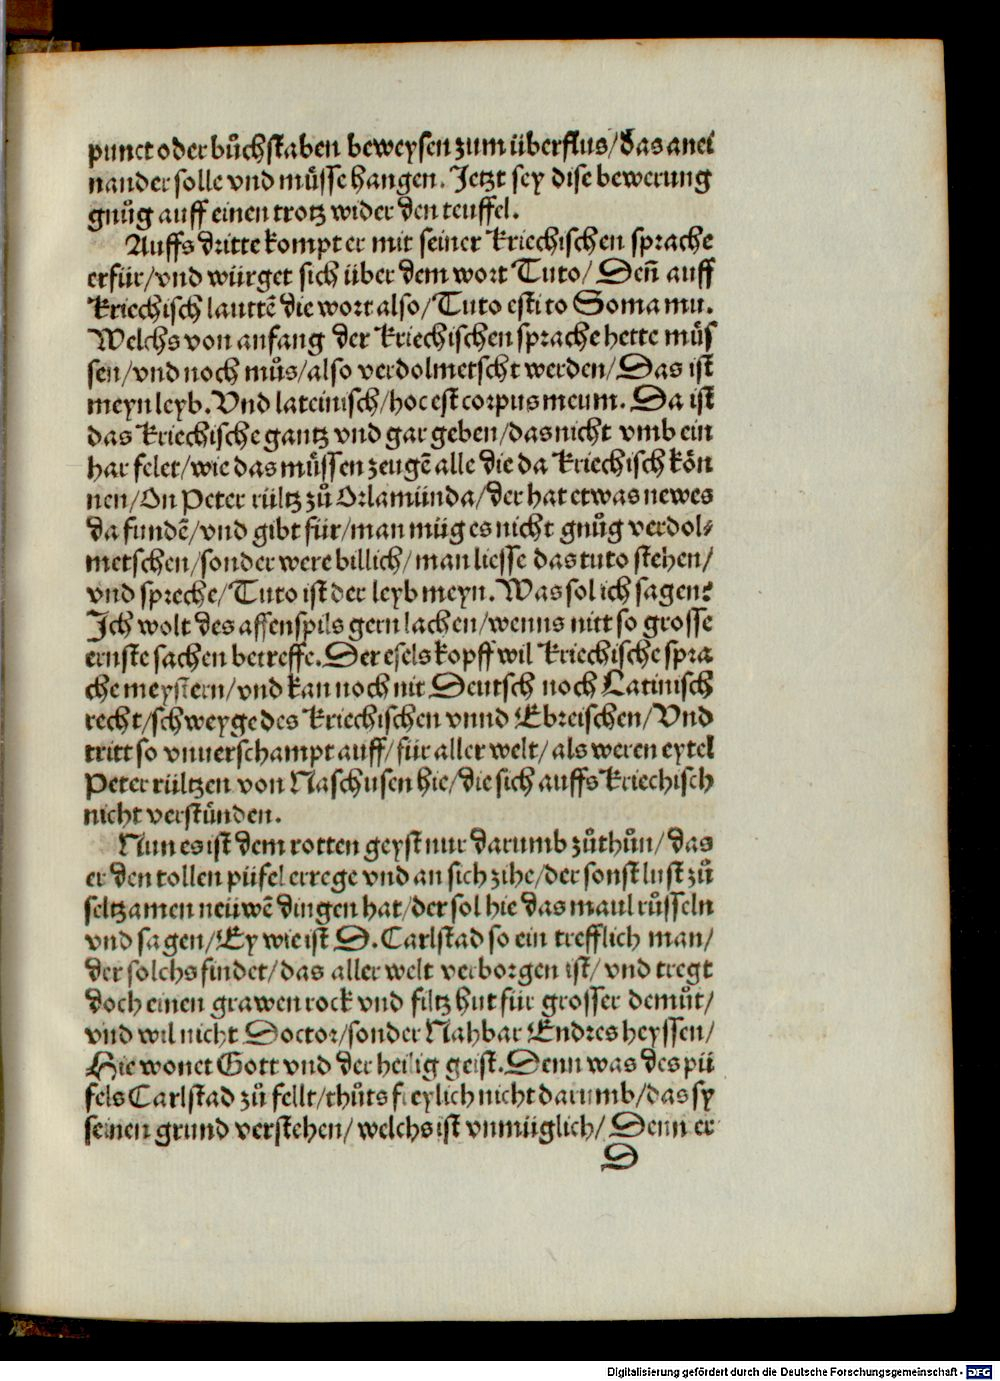 punct oder bůchstaben beweysen zum überflus/das anei
nander solle vnd müsse hangen. Jetzt sey dise bewerung
gnůg auff einen trotz wider den teuffel.
Auffs dritte kompt er mit seiner Kriechischen sprache
erfür/vnd würget sich über dem wort Tuto/Deñ auff
Kriechisch lauttē die wort also/Tuto esti to Soma mu.
Welchs von anfang der Kriechischen sprache hette müs
sen/vnd noch můs/also verdolmetscht werden/Das ist
meyn leyb. Vnd lateinisch/hoc est corpus meum. Da ist
das Kriechische gantz vnd gar geben/das nicht vmb ein
har felet/wie das müssen zeugē alle die da Kriechisch kön
nen/On Peter rültz zů Orlamünda/der hat etwas newes
da fundē/vnd gibt für/man müg es nicht gnůg verdol-
metschen/sonder were billich/man liesse das tuto stehen/
vnd spreche/Tuto ist der leyb meyn. Was sol ich sagen?
Ich wolt des affenspils gern lachen/wenns nitt so grosse
ernste sachen betreffe. Der eselskopff wil Kriechische spra
che meystern/vnd kan noch nit Deutsch noch Latinisch
recht/schweyge des Kriechischen vnnd Ebreischen/Vnd
tritt so vnuerschampt auff/für aller welt/als weren eytel
Peter rültzen von Naschusen hie/die sich auffs Kriechisch
nicht verstünden.
Nun es ist dem rotten geyst nur darumb zůthůn/das
er den tollen püfel errege vnd an sich zihe/der sonst lust zů
seltzamen neüwē dingen hat/der sol hie das maul růsseln
vnd sagen/Ey wie ist D. Carlstad so ein trefflich man/
der solchs findet/das aller welt verborgen ist/vnd tregt
doch einen grawen rock vnd filtz hut für grosser demůt/
vnd wil nicht Doctor/sonder Nahbar Endres heyssen/
Hie wonet Gott vnd der heilig geist. Denn was des pü
fels Carlstad zů fellt/thůts freylich nicht darumb/das sy
seinen grund verstehen/welchs ist vnmüglich/Denn er
D
Digitalisierung gefördert durch die Deutsche Forschungsgemeinschaft - DFG